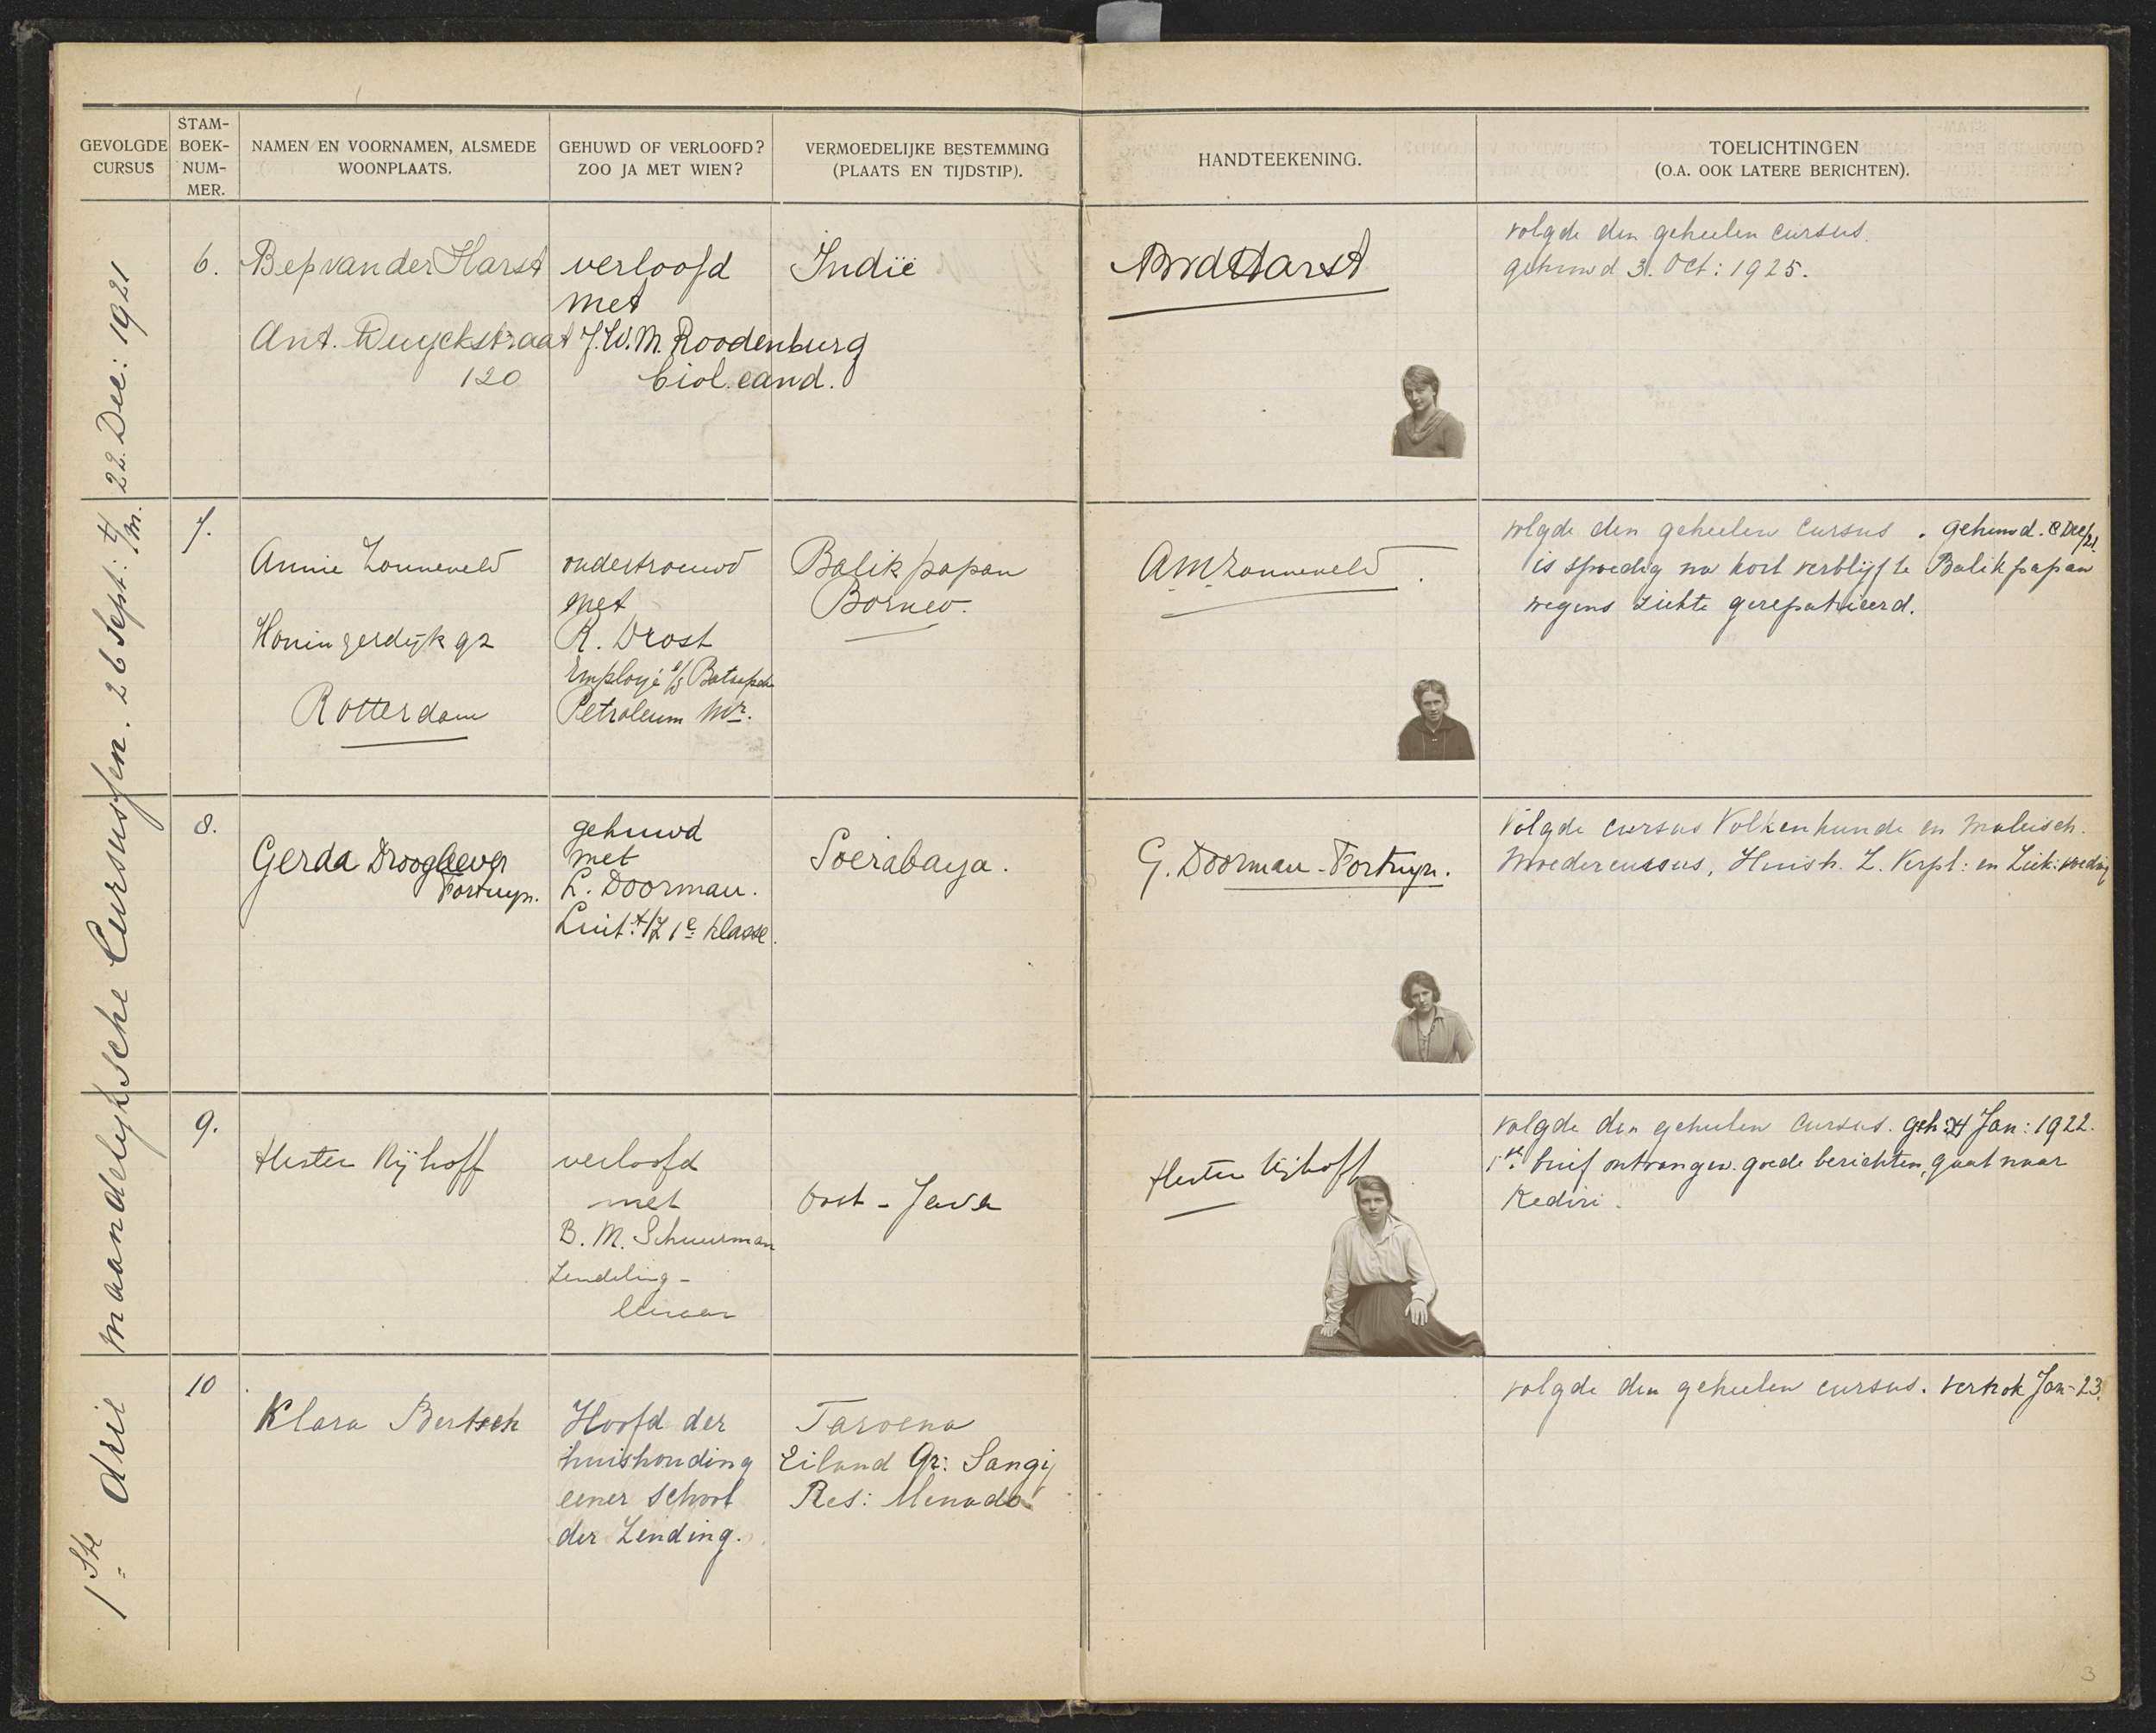 GEVOLGDE CURSUS
STAM-BOEK-NUM-MER.
NAMEN EN VOORNAMEN, ALSMEDE WOONPLAATS.
GEHUWD OF VERLOOFD? ZOO JA MET WIEN?
VERMOEDELIJKE BESTEMMING (PLAATS EN TIJDSTIP).
HANDTEEKENING.
TOELICHTINGEN (O.A. OOK LATERE BERICHTEN).
1ste drie maandelijksche Cursussen. 26 Sept: t/m. 22 Dec: 1921
6.
Bep van der Harst
Ant. Duyckstraat
120
verloofd
met
J.W.M. Roodenburg
biol. cand.
Indië
vdHarst
volgde den geheelen cursus.
gehuwd 3. Oct: 1925.
7.
Annie Zonneveld
Honingerdijk 92
Rotterdam
ondertrouwd
met
R. Drost
Employé b/d Bataafsche
Petroleum Mij.
Balik papan
Borneo.
AMZonneveld.
volgde den geheelen cursus. gehuwd. 8 Dec/21.
is spoedig na kort verblijf te Balikpapan
wegens ziekte gerepatrieerd.
8.
Gerda Droogleever
Fortuyn.
gehuwd
met
L. Doorman.
Luit: t/Z 1e klasse.
Soerabaya.
G. Doorman-Fortuyn.
Volgde cursus Volkenkunde en Maleisch.
Moedercursus, Huish. Z. Verpl: en Ziek: voeding
9.
Hester Nijhoff
verloofd
met
B. M. Schuurman
Zendeling-
leeraar
Oost-Java
Hester Nijhoff
volgde den geheelen cursus. geh: 24 Jan: 1922.
1ste brief ontvangen. goede berichten, gaat naar
Kediri.
10
Klara Bertsch
Hoofd der
huishouding
eener school
der Zending.
Taroena
Eiland Gr: Sangij
Res: Menado
volgde den geheelen cursus. vertrok Jan-23.
3